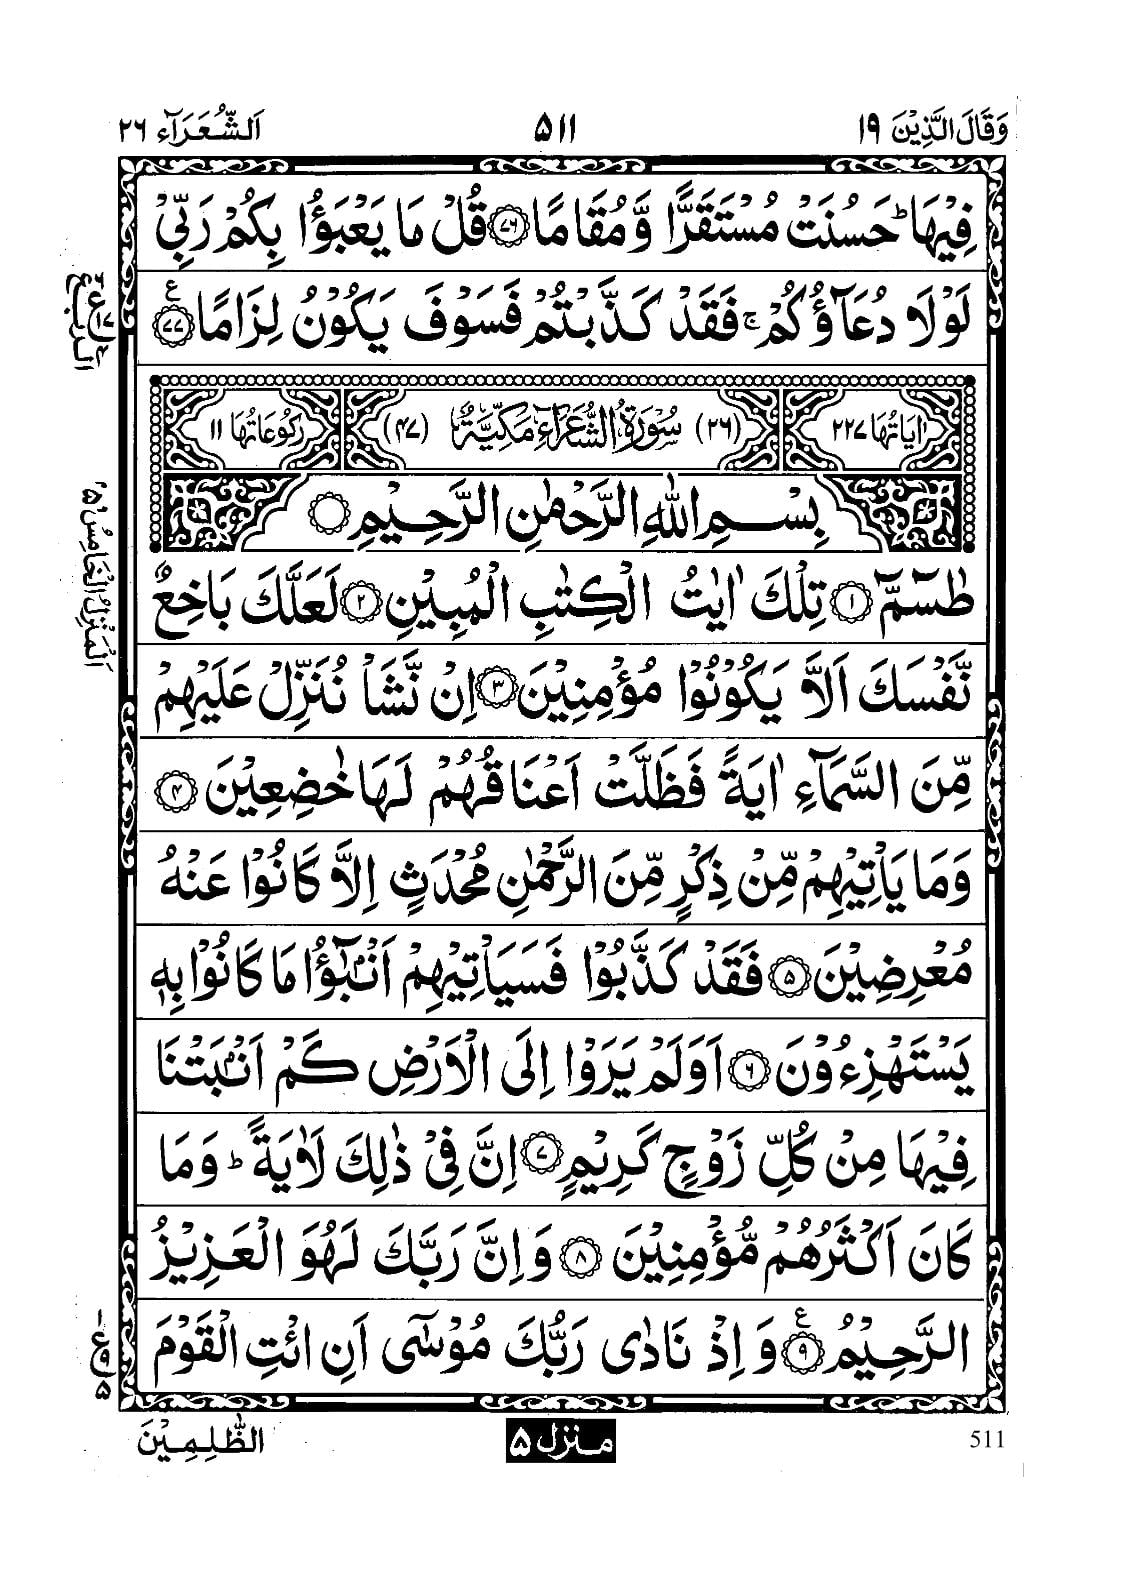 وَقَالَ الَّذِيْنَ ١٩
٥١١
اَلشُّعَرَآء ٢٦
فِيْهَا ؕ حَسُنَتْ مُسْتَقَرًّا وَّمُقَامًا ﴿٧٦﴾ قُلْ مَا يَعْبَؤُا بِكُمْ رَبِّيْ
لَوْلَا دُعَآؤُكُمْ ۚ فَقَدْ كَذَّبْتُمْ فَسَوْفَ يَكُوْنُ لِزَامًا ﴿٧٧﴾ ع
اٰيَاتُهَا ٢٢٧
(٢٦) سُوْرَةُ الشُّعَرَآءِ مَكِّيَّةٌ (٤٧)
رُكُوْعَاتُهَا ١١
بِسْمِ اللّٰهِ الرَّحْمٰنِ الرَّحِيْمِ
طٰسٓمّٓ ﴿١﴾ تِلْكَ اٰيٰتُ الْكِتٰبِ الْمُبِيْنِ ﴿٢﴾ لَعَلَّكَ بَاخِعٌ
نَّفْسَكَ اَلَّا يَكُوْنُوْا مُؤْمِنِيْنَ ﴿٣﴾ اِنْ نَّشَاْ نُنَزِّلْ عَلَيْهِمْ
مِّنَ السَّمَآءِ اٰيَةً فَظَلَّتْ اَعْنَاقُهُمْ لَهَا خٰضِعِيْنَ ﴿٤﴾
وَمَا يَاْتِيْهِمْ مِّنْ ذِكْرٍ مِّنَ الرَّحْمٰنِ مُحْدَثٍ اِلَّا كَانُوْا عَنْهُ
مُعْرِضِيْنَ ﴿٥﴾ فَقَدْ كَذَّبُوْا فَسَيَاْتِيْهِمْ اَنْۢبٰٓؤُا مَا كَانُوْا بِهٖ
يَسْتَهْزِءُوْنَ ﴿٦﴾ اَوَلَمْ يَرَوْا اِلَى الْاَرْضِ كَمْ اَنْۢبَتْنَا
فِيْهَا مِنْ كُلِّ زَوْجٍ كَرِيْمٍ ﴿٧﴾ اِنَّ فِيْ ذٰلِكَ لَاٰيَةً ؕ وَمَا
كَانَ اَكْثَرُهُمْ مُّؤْمِنِيْنَ ﴿٨﴾ وَاِنَّ رَبَّكَ لَهُوَ الْعَزِيْزُ
الرَّحِيْمُ ﴿٩﴾ ع وَاِذْ نَادٰى رَبُّكَ مُوْسٰٓى اَنِ ائْتِ الْقَوْمَ
الرُّبع ع ١٧
اَلْمَنْزِلُ الْخَامِسُ ٥
١ ع ٩ ٥
511
منزل ٥
الظّٰلِمِيْنَ